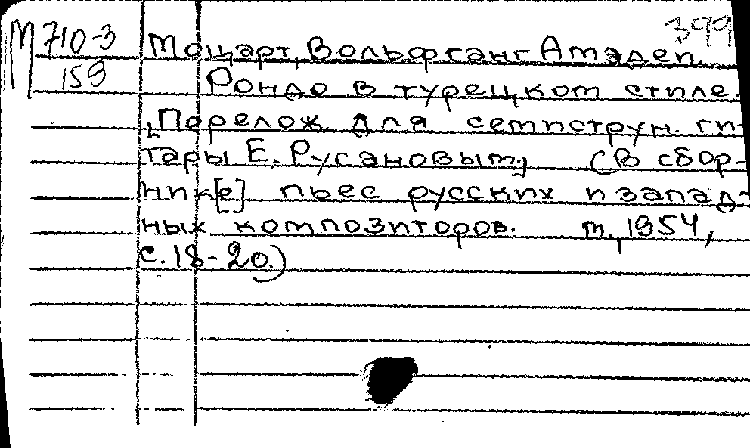 399
М 710-3
159
Моцарт, Вольфганг Амадей.
Рондо в турецком стиле.
[Перелож. для семиструн. ги-
тары Е. Русановым] (В сбор-
ник[е] пьес русских и запад-
ных композиторов. М., 1954,
с. 18-20.)